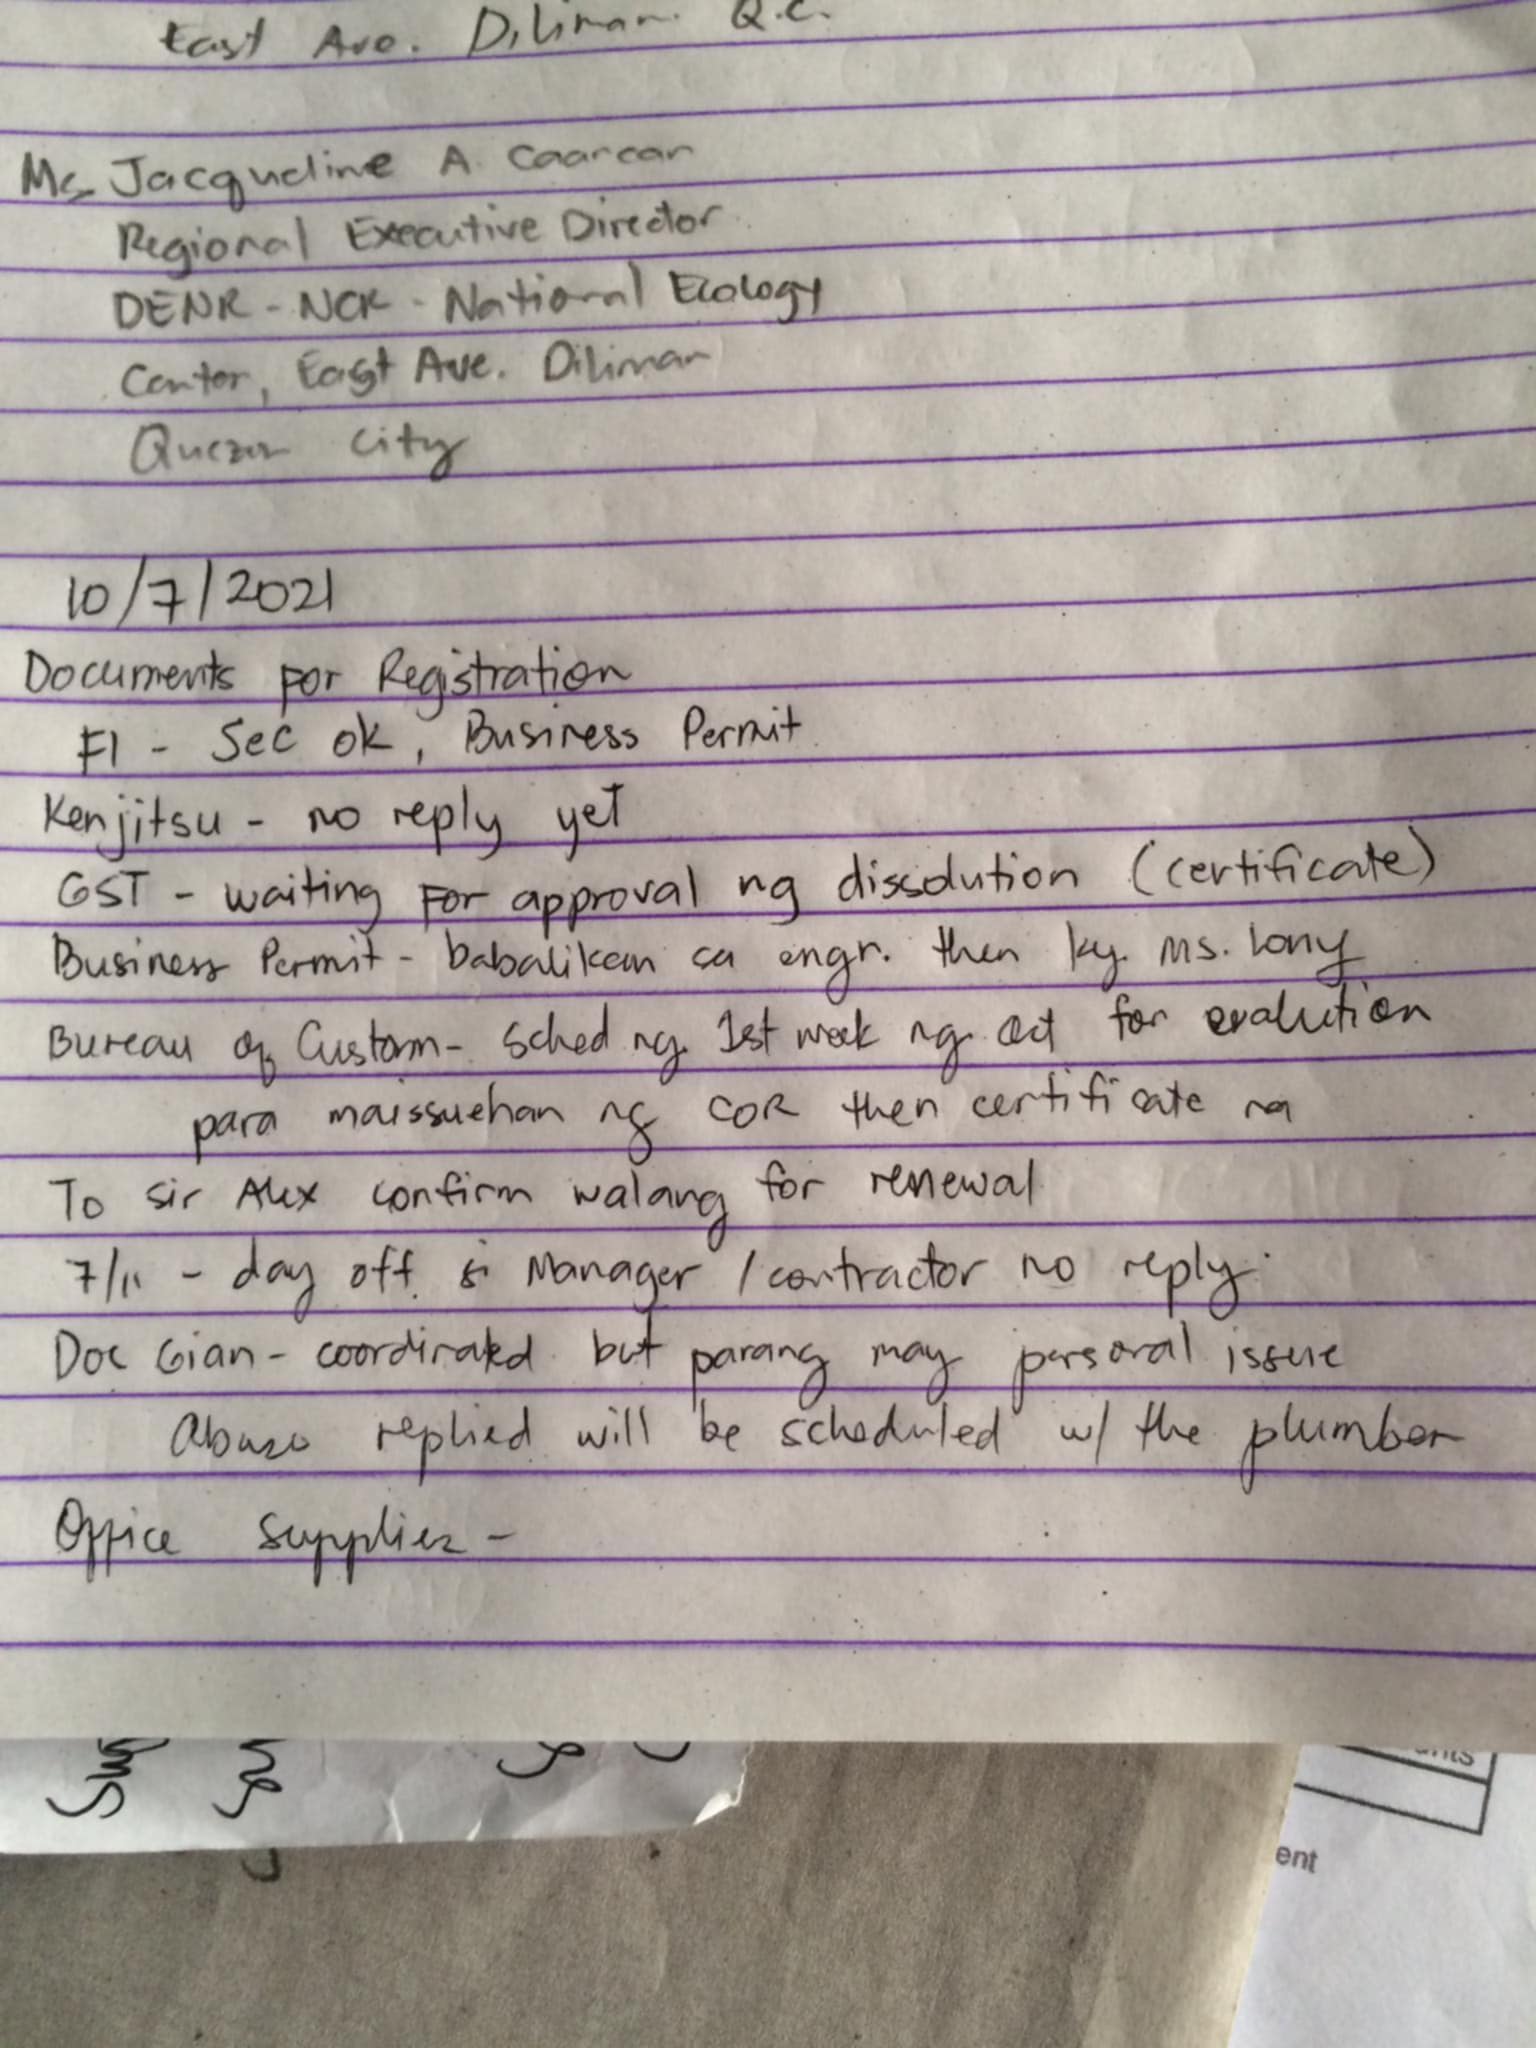 East Ave. Diliman Q.C.
Ms. Jacqueline A. Caancan
Regional Executive Director
DENR - NCR - National Ecology
Center, East Ave. Diliman
Quezon City
10/7/2021
Documents for Registration
F1 - Sec ok, Business Permit
Kenjitsu - no reply yet
GST - waiting For approval ng dissolution (certificate)
Business Permit - babalikan sa engr. then ky Ms. Lony
Bureau of Custom - Sched ng 1st week ng oct for evalution
para maissuehan ng COR then certificate na
To sir Alex confirm walang for renewal
7/11 - day off si Manager / contractor no reply.
Doc Gian - coordinated but parang may personal issue
replied will be scheduled w/ the plumber
Office Supplies -
ent